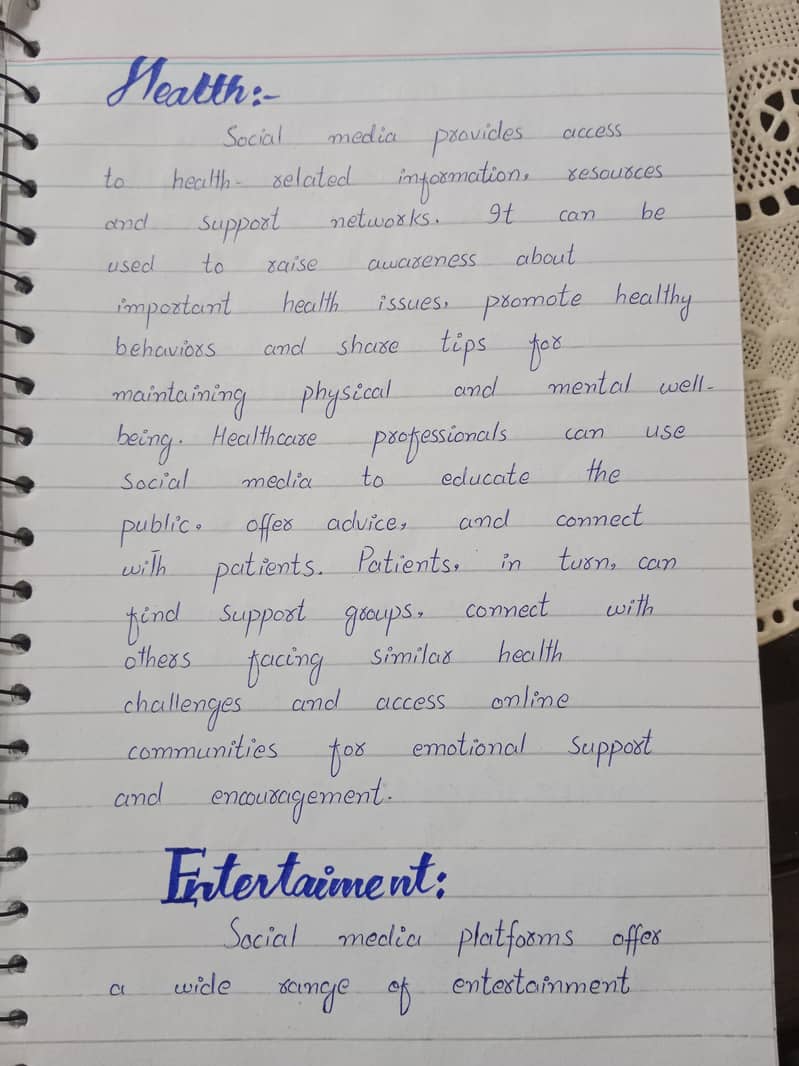 Health:-
Social media provides access
to health-related information, resources
and support networks. It can be
used to raise awareness about
important health issues, promote healthy
behaviors and share tips for
maintaining physical and mental well-
being. Healthcare professionals can use
social media to educate the
public, offer advice, and connect
with patients. Patients, in turn, can
find support groups, connect with
others facing similar health
challenges and access online
communities for emotional support
and encouragement.
Entertaiment:
Social media platforms offer
a wide range of entertainment